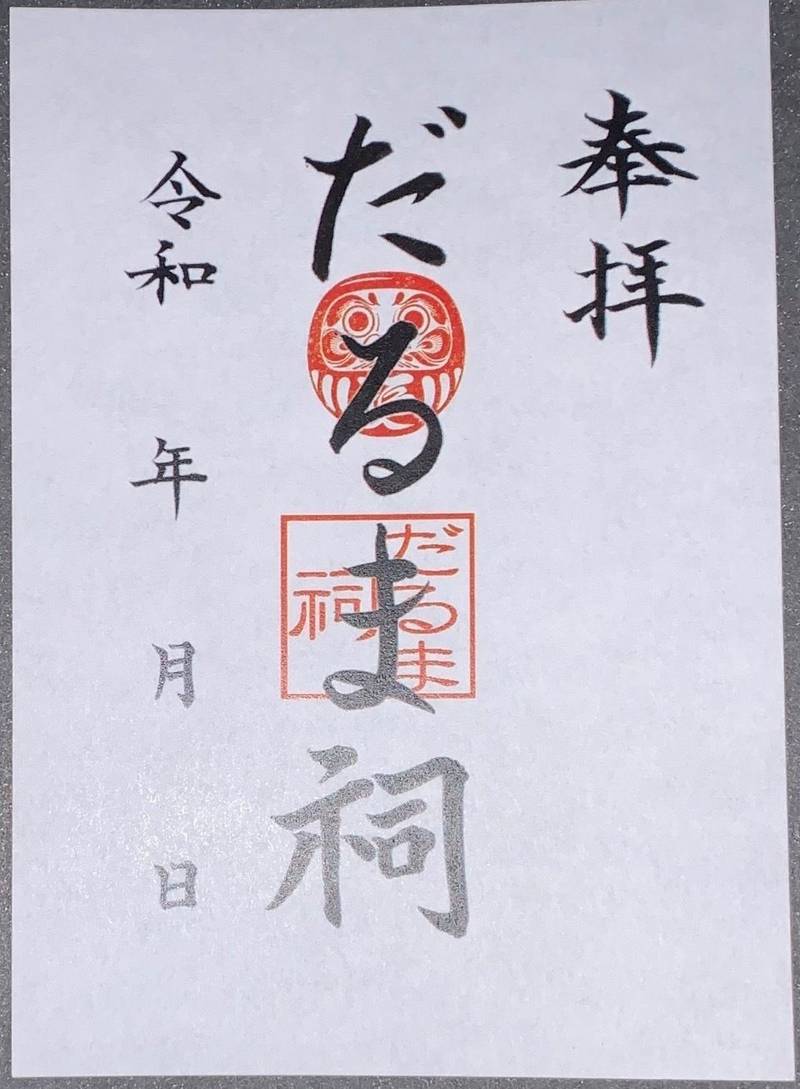 奉拝
だるま祠
だるま
祠
令和 年 月 日